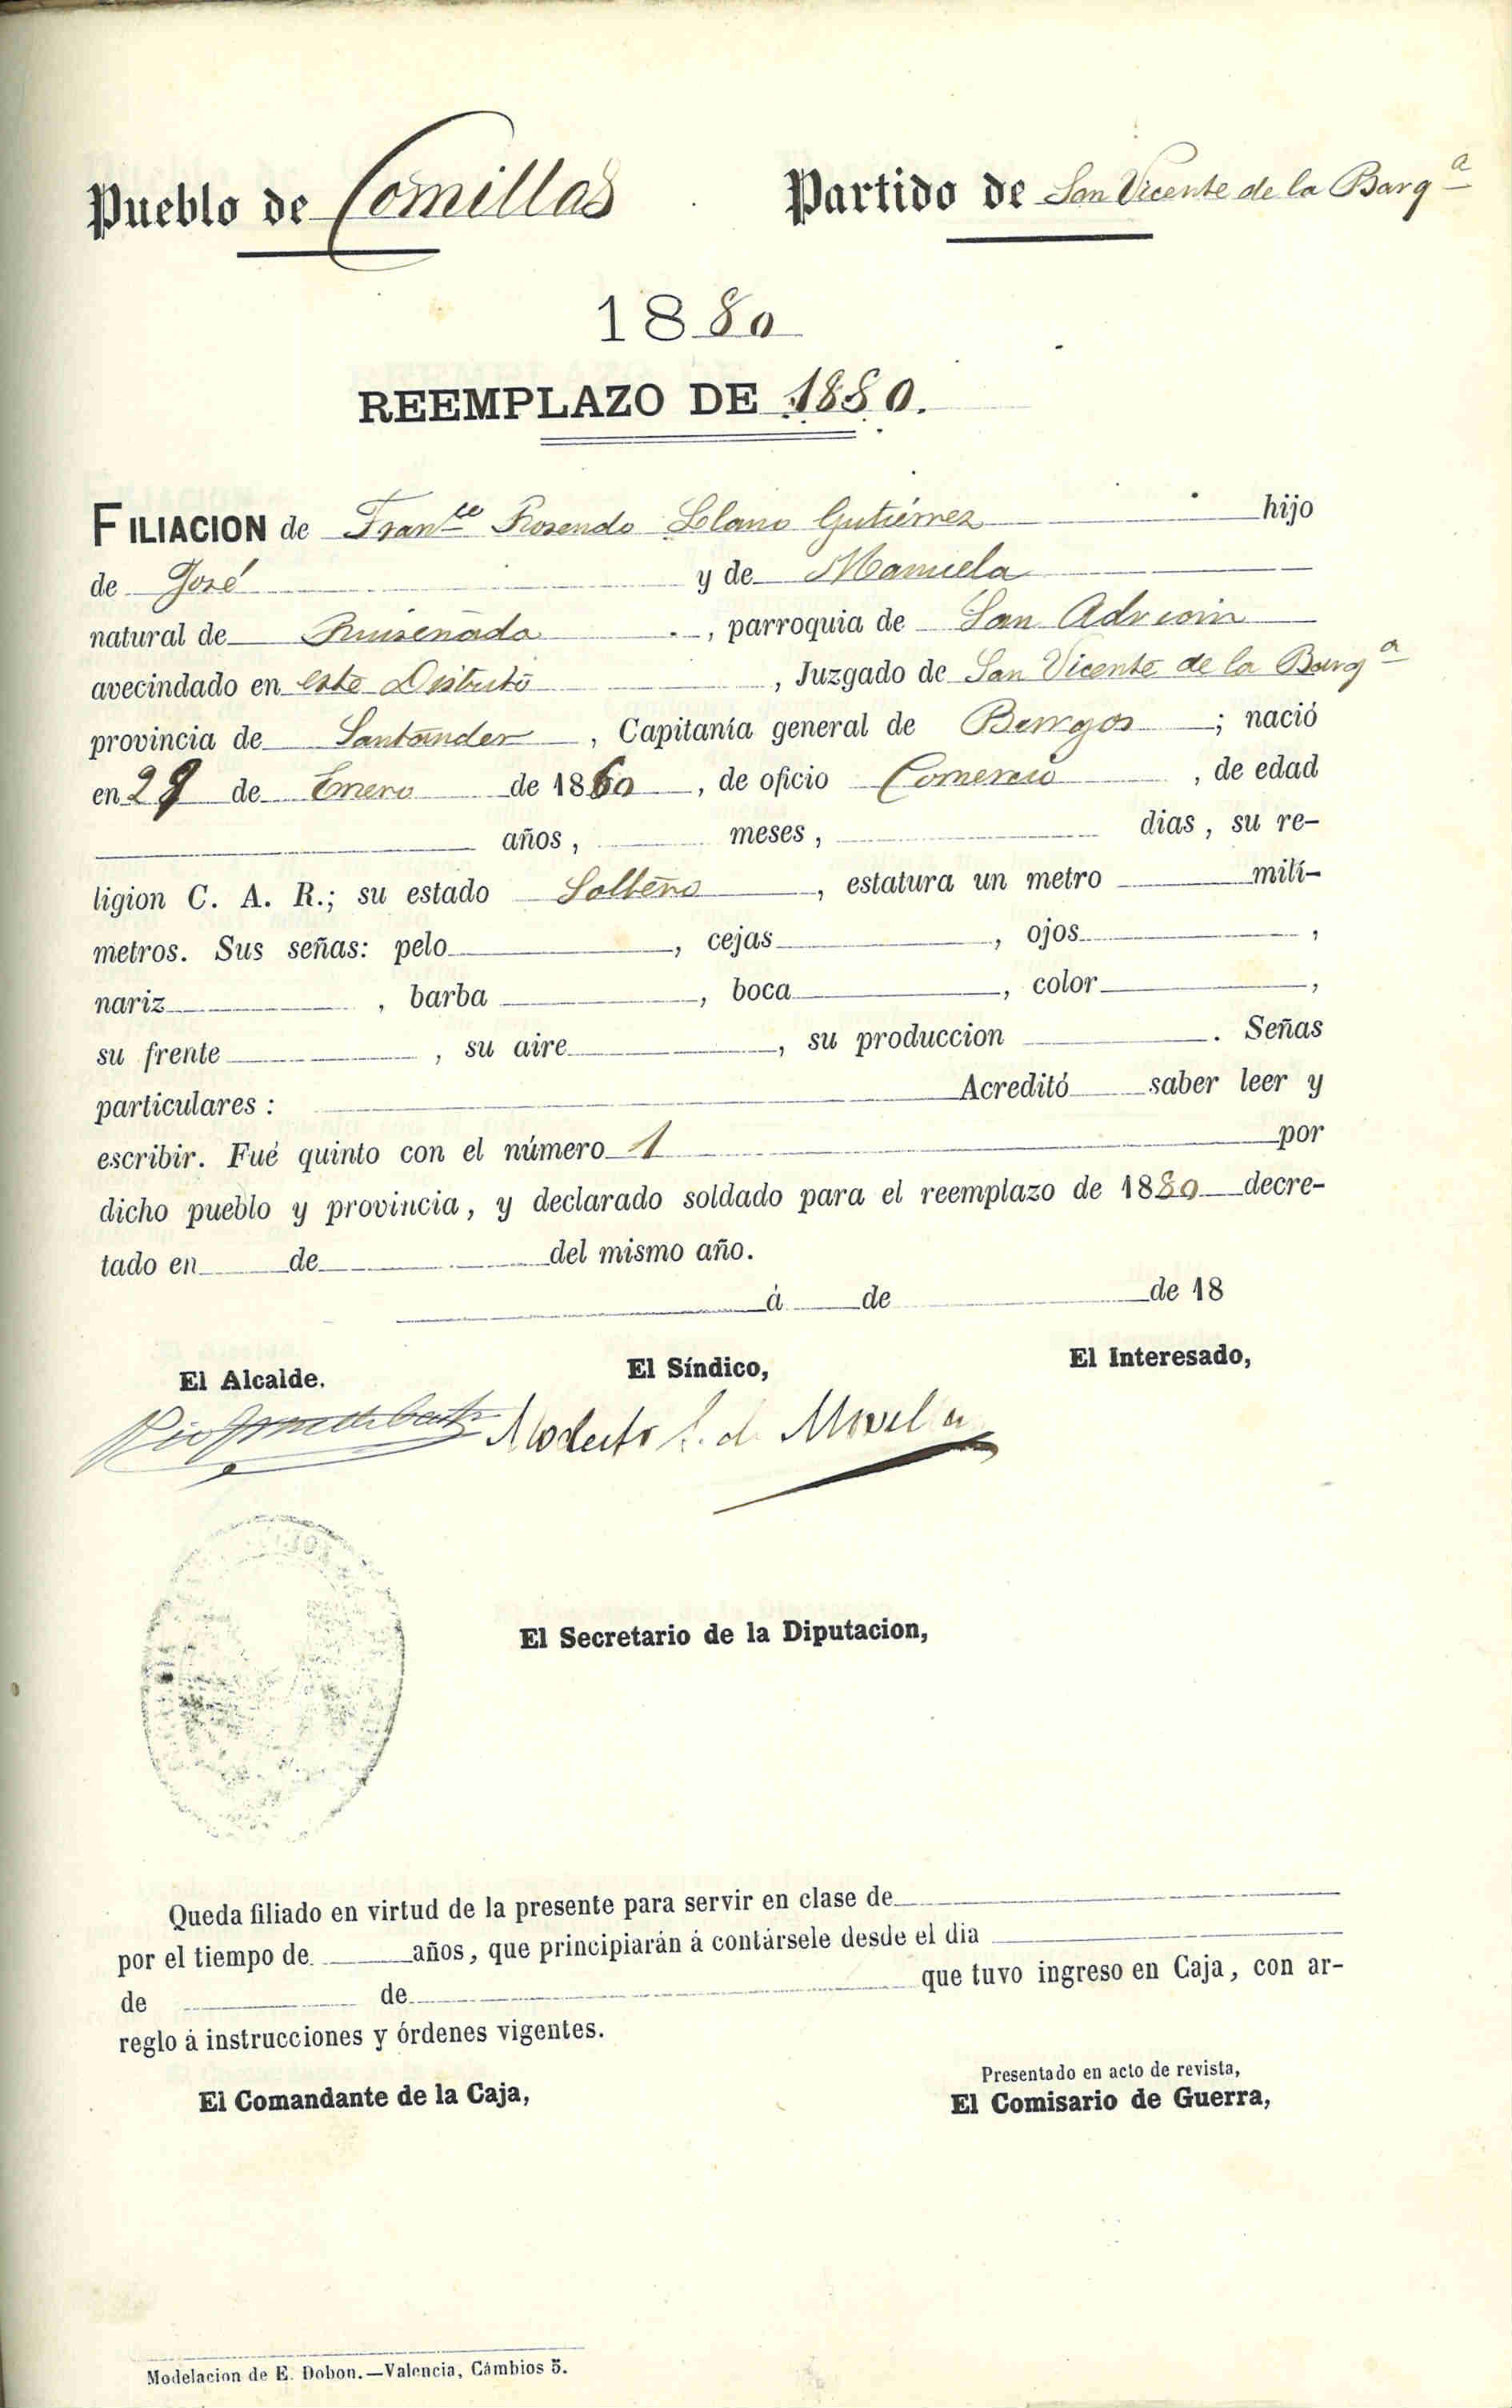 Pueblo de Comillas Partido de San Vicente de la Barqª
1880
REEMPLAZO DE 1880.
FILIACION de Franco Rosendo Llano Gutiérrez hijo
de José y de Manuela
natural de Ruiseñada, parroquia de San Adrian
avecindado en este Distrito, Juzgado de San Vicente de la Barqª
provincia de Santander, Capitanía general de Burgos; nació
en 29 de Enero de 1860, de oficio Comercio, de edad
años, meses, dias, su re-
ligion C. A. R.; su estado Soltero, estatura un metro milí-
metros. Sus señas: pelo, cejas, ojos,
nariz, barba, boca, color,
su frente, su aire, su produccion. Señas
particulares: Acreditó saber leer y
escribir. Fué quinto con el número 1 por
dicho pueblo y provincia, y declarado soldado para el reemplazo de 1880 decre-
tado en de del mismo año.
á de de 18
El Alcalde. El Síndico, El Interesado,
Modesto S. de Movellan
El Secretario de la Diputacion,
Queda filiado en virtud de la presente para servir en clase de
por el tiempo de años, que principiarán á contársele desde el dia
de de que tuvo ingreso en Caja, con ar-
reglo á instrucciones y órdenes vigentes.
Presentado en acto de revista,
El Comandante de la Caja, El Comisario de Guerra,
Modelacion de E. Dobon.—Valencia, Cámbios 5.